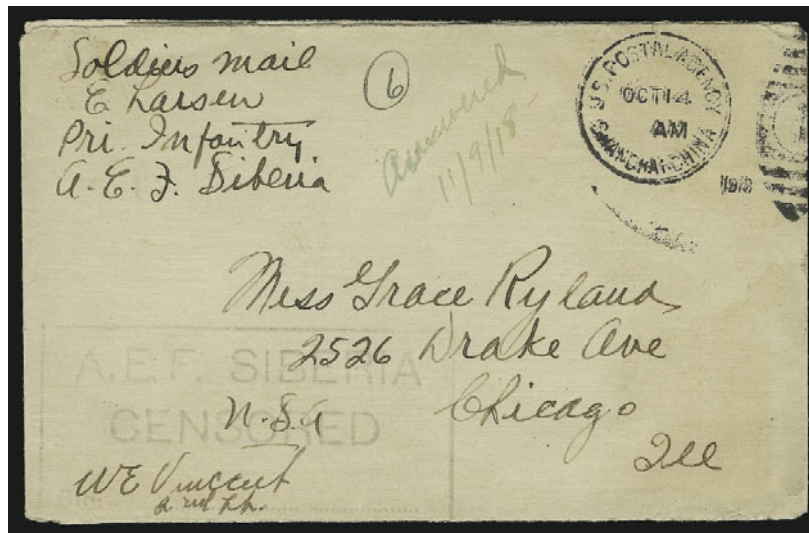 Soldiers mail
E Larsen
Pri. Infantry
A. E. F. Siberia
6
Answered
11/9/18
U.S. POSTAL AGENCY
OCT 14
AM
SHANGHAI-CHINA
1918
Miss Grace Ryland
2526 Drake Ave
Chicago
Ill
U.S.A
A.E.F. SIBERIA
CENSORED
WE Vincent